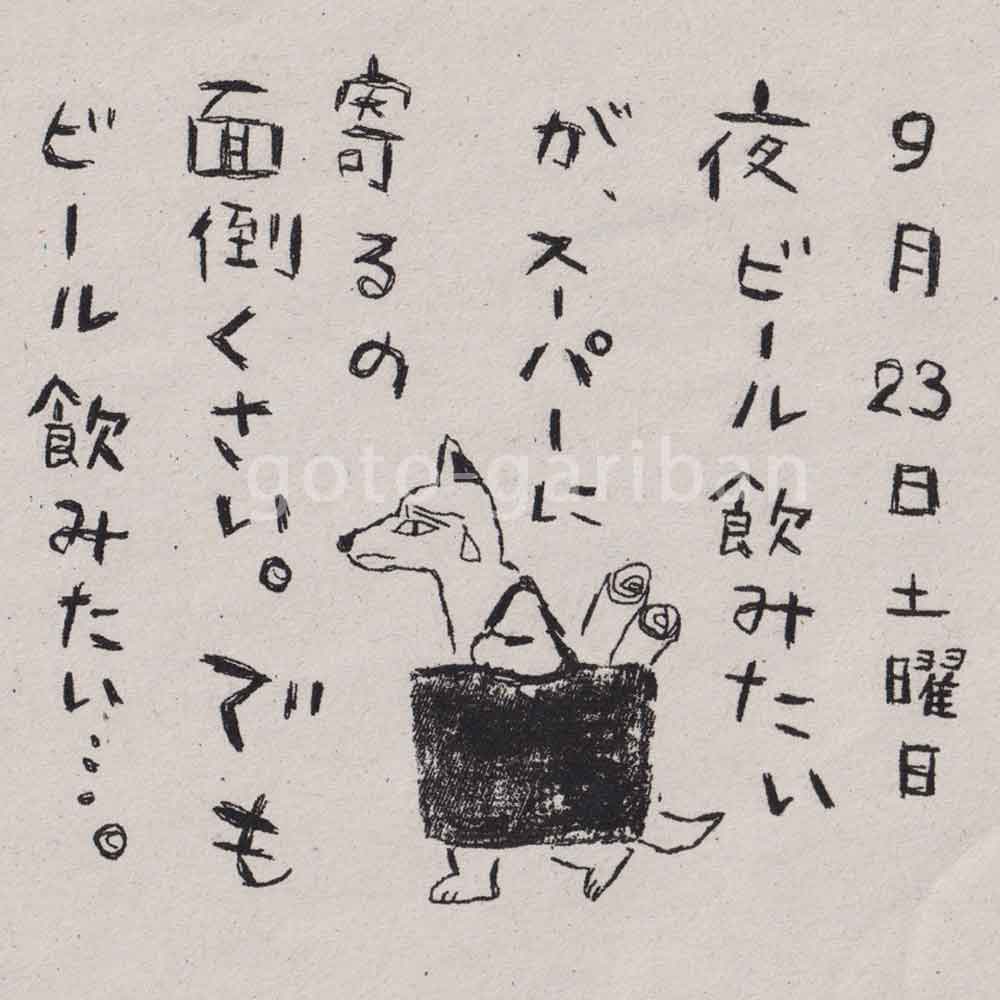 9月23日土曜日
夜ビール飲みたい
が、スーパーに
寄るの
面倒くさい。でも
ビール飲みたい…。
goto-gariban